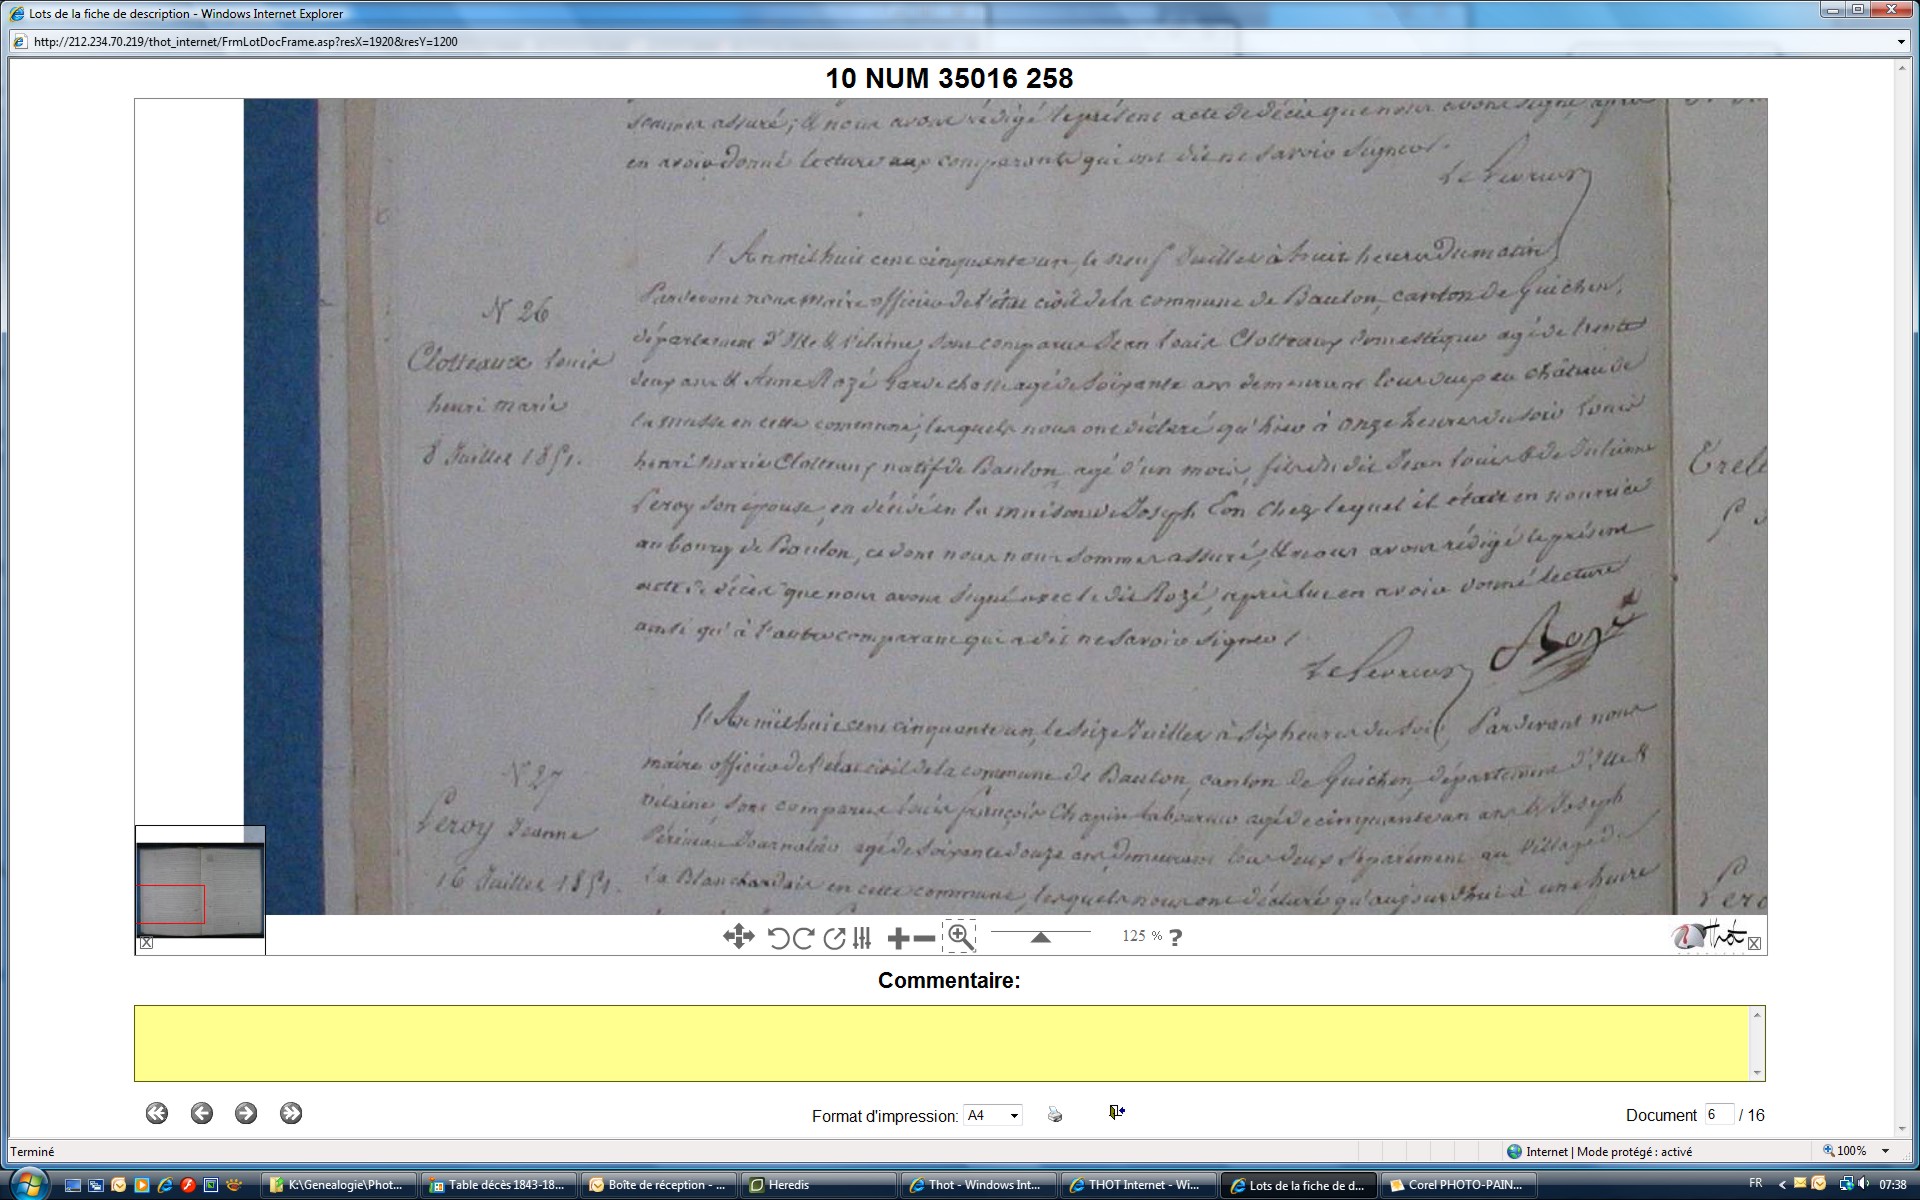 Lots de la fiche de description - Windows Internet Explorer
http://212.234.70.219/thot_internet/FrmLotDocFrame.asp?resX=1920&resY=1200
10 NUM 35016 258
sommes assuré; & nous avons rédigé le présent acte de décès que nous avons signé, après
en avoir donné lecture aux comparants qui ont dit ne savoir signer.
L'An mil huit cent cinquante un, le neuf Juillet à huit heures du matin
Pardevant nous maire officier de l'état civil de la commune de Baulon, canton de Guichen,
N 26
département d'Ille & Vilaine, sont comparus Jean Louis Clotteaux domestique agé de trente
Clotteaux Louis
deux ans & Anne Rozé Garde chasse agé de soixante ans demeurant tous deux au château de
henri marie
la musse en cette commune, lesquels nous ont déclaré qu'hier à onze heures du soir Louis
8 Juillet 1851.
henri Marie Clotteaux natif de Baulon, agé d'un mois, fils du dit Jean Louis & de Julienne
Leroy son épouse, en décédé en la maison de Joseph Eon chez lequel il était en nourrice
au bourg de Baulon, ce dont nous nous sommes assuré, & nous avons rédigé le présent
acte de décès que nous avons signé avec le dit Rozé, après lui en avoir donné lecture
ainsi qu'à l'autre comparant qui a dit ne savoir signer
Rozé
L'An mil huit cent cinquante un, le seize Juillet à six heures du soir, Pardevant nous
maire officier de l'état civil de la commune de Baulon, canton de Guichen, département d'Ille &
N 27
Vilaine, sont comparus Louis françois Chapin laboureur agé de cinquante un ans & Joseph
Leroy Jeanne
journalier agé de soixante douze ans, demeurant tous deux séparément au Village de
16 Juillet 1851.
La Blanchardais en cette commune, lesquels nous ont déclaré qu'aujourd'hui à une heure
125 % ?
Thot
Commentaire:
Format d'impression: A4
Document 6 / 16
Terminé
Internet | Mode protégé : activé
100%
K:\Genealogie\Phot...
Table décès 1843-18...
Boîte de réception - ...
Heredis
Thot - Windows Int...
THOT Internet - Wi...
Lots de la fiche de d...
Corel PHOTO-PAIN...
FR
07:38